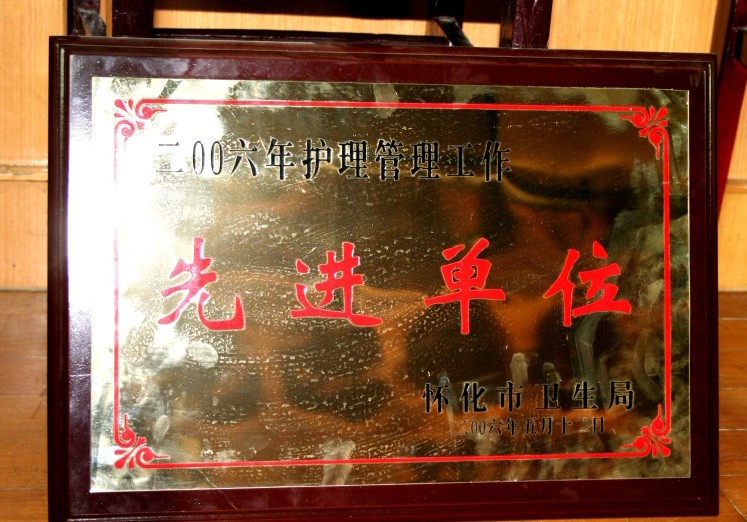 二00六年护理管理工作
先进单位
怀化市卫生局
二00六年五月十二日